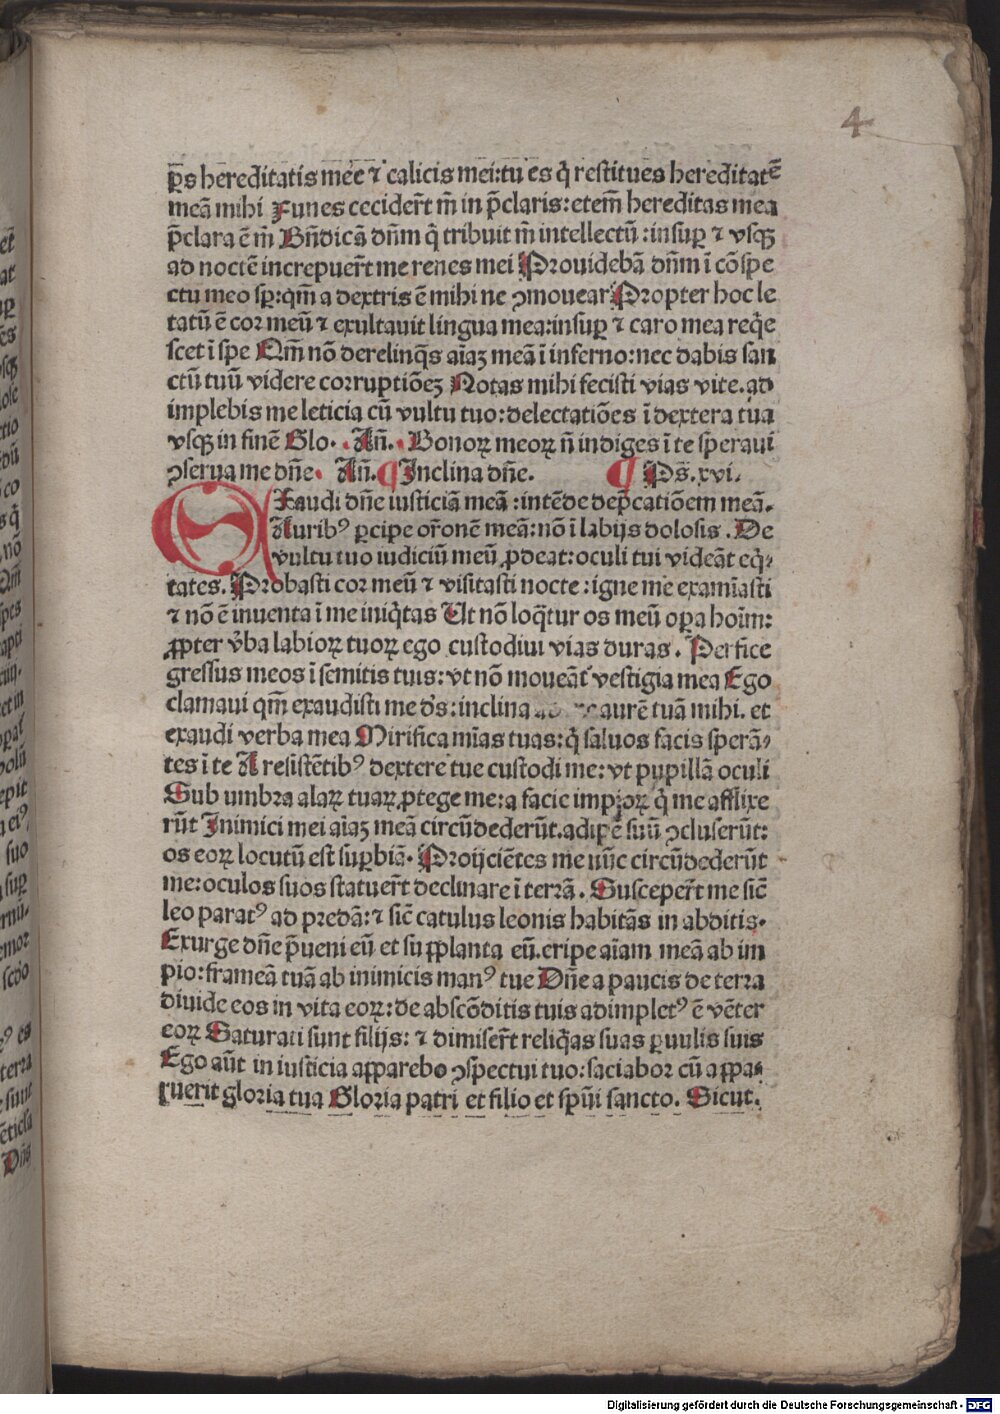 4
p̄s hereditatis mee ⁊ calicis mei: tu es q̄ restitues hereditatē
meā mihi Funes cecider̄t m̄ in p̄claris: etem̄ hereditas mea
p̄clara ē m̄ Bn̄dicā dn̄m q̄ tribuit m̄ intellectū: insuꝑ ⁊ vsqꝫ
ad noctē increpuer̄t me renes mei Prouidebā dn̄m ī cōspe
ctu meo sꝑ: qm̄ a dextris ē mihi ne ꝯmouear Propter hoc le
tatū ē cor meū ⁊ exultauit lingua mea: insuꝑ ⁊ caro mea reqͥe
scet ī spe Qm̄ nō derelinq̄s aīaꝫ meā ī inferno: nec dabis san
ctū tuū videre corruptiōeꝫ Notas mihi fecisti vias vite. ad
implebis me leticia cū vultu tuo: delectatiōes ī dextera tua
vsqꝫ in finē Glo. Añ. Bonoꝝ meoꝝ n̄ indiges ī te speraui
ꝯserua me dn̄e. Añ. ¶ Inclina dn̄e. ¶ Ps̄. xvi.
Exaudi dn̄e iusticiā meā: intēde dep̄catiōem meā.
Auribꝰ ꝑcipe or̄onē meā: nō ī labijs dolosis. De
vultu tuo iudiciū meū ꝓdeat: oculi tui videāt eqͥ
tates. Probasti cor meū ⁊ visitasti nocte: igne me examīasti
⁊ nō ē inuenta ī me iniqͥtas Ut nō loq̄tur os meū oꝑa hoīm:
ꝓpter v̄ba labioꝝ tuoꝝ ego custodiui vias duras. Perfice
gressus meos ī semitis tuis: vt nō moueāt᷑ vestigia mea Ego
clamaui qm̄ exaudisti me d's: inclina aurē tuā mihi. et
exaudi verba mea Mirifica mīas tuas: q̄ saluos facis sperā
tes ī te A resistētibꝰ dextere tue custodi me: vt pupillā oculi
Sub umbra alaꝝ tuaꝝ ꝓtege me: a facie impioꝝ q̄ me afflixe
rūt Inimici mei aīaꝫ meā circūdederūt. adipē suū ꝯcluserūt:
os eoꝝ locutū est suꝑbiā. Proijciētes me nūc circūdederūt
me: oculos suos statuer̄t declinare ī terrā. Susceper̄t me sic̄
leo paratꝰ ad predā: ⁊ sic̄ catulus leonis habitās in abditis.
Exurge dn̄e p̄ueni eū et supplanta eū. eripe aīam meā ab im
pio: frameā tuā ab inimicis manꝰ tue Dn̄e a paucis de terra
diuide eos in vita eoꝝ: de abscōditis tuis adimpletꝰ ē vēter
eoꝝ Saturati sunt filijs: ⁊ dimiser̄t reliqͥas suas ꝑuulis suis
Ego aūt in iusticia apparebo ꝯspectui tuo: saciabor cū appa
ruerit gloria tua Gloria patri et filio et spūi sancto. Sicut.
Digitalisierung gefördert durch die Deutsche Forschungsgemeinschaft - DFG